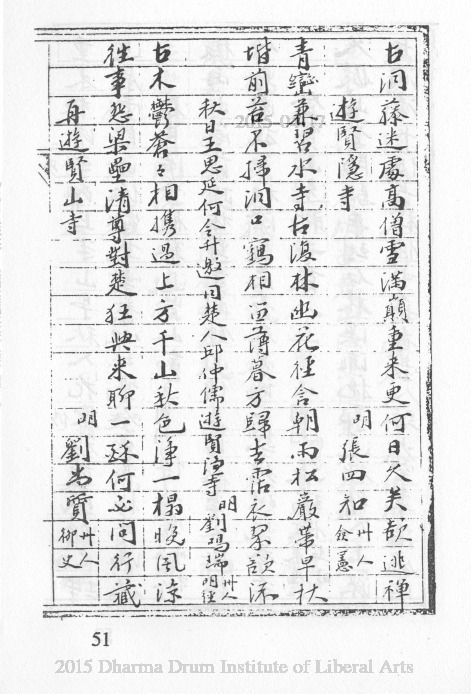 古洞藤迷處高僧雪滿顛重來更何日久矣歎逃禪
遊賢隱寺 明 張四知 州人 僉憲
青巒兼碧水寺古復林幽花徑含朝雨松巖帶早秋
堦前苔不掃洞口鶴相 薄暮方歸去霑衣翠欲流
秋日王思延何令升邀同楚人邱仲儒遊賢隱寺 明 劉鳴瑞 州人 明經
古木鬱蒼々相携過上方千山秋色淨一榻晚風涼
往事悲梁壘清尊對楚狂興來聊一 何必問行藏
再遊賢山寺 明 劉尚質 州人 御史
51
2015 Dharma Drum Institute of Liberal Arts